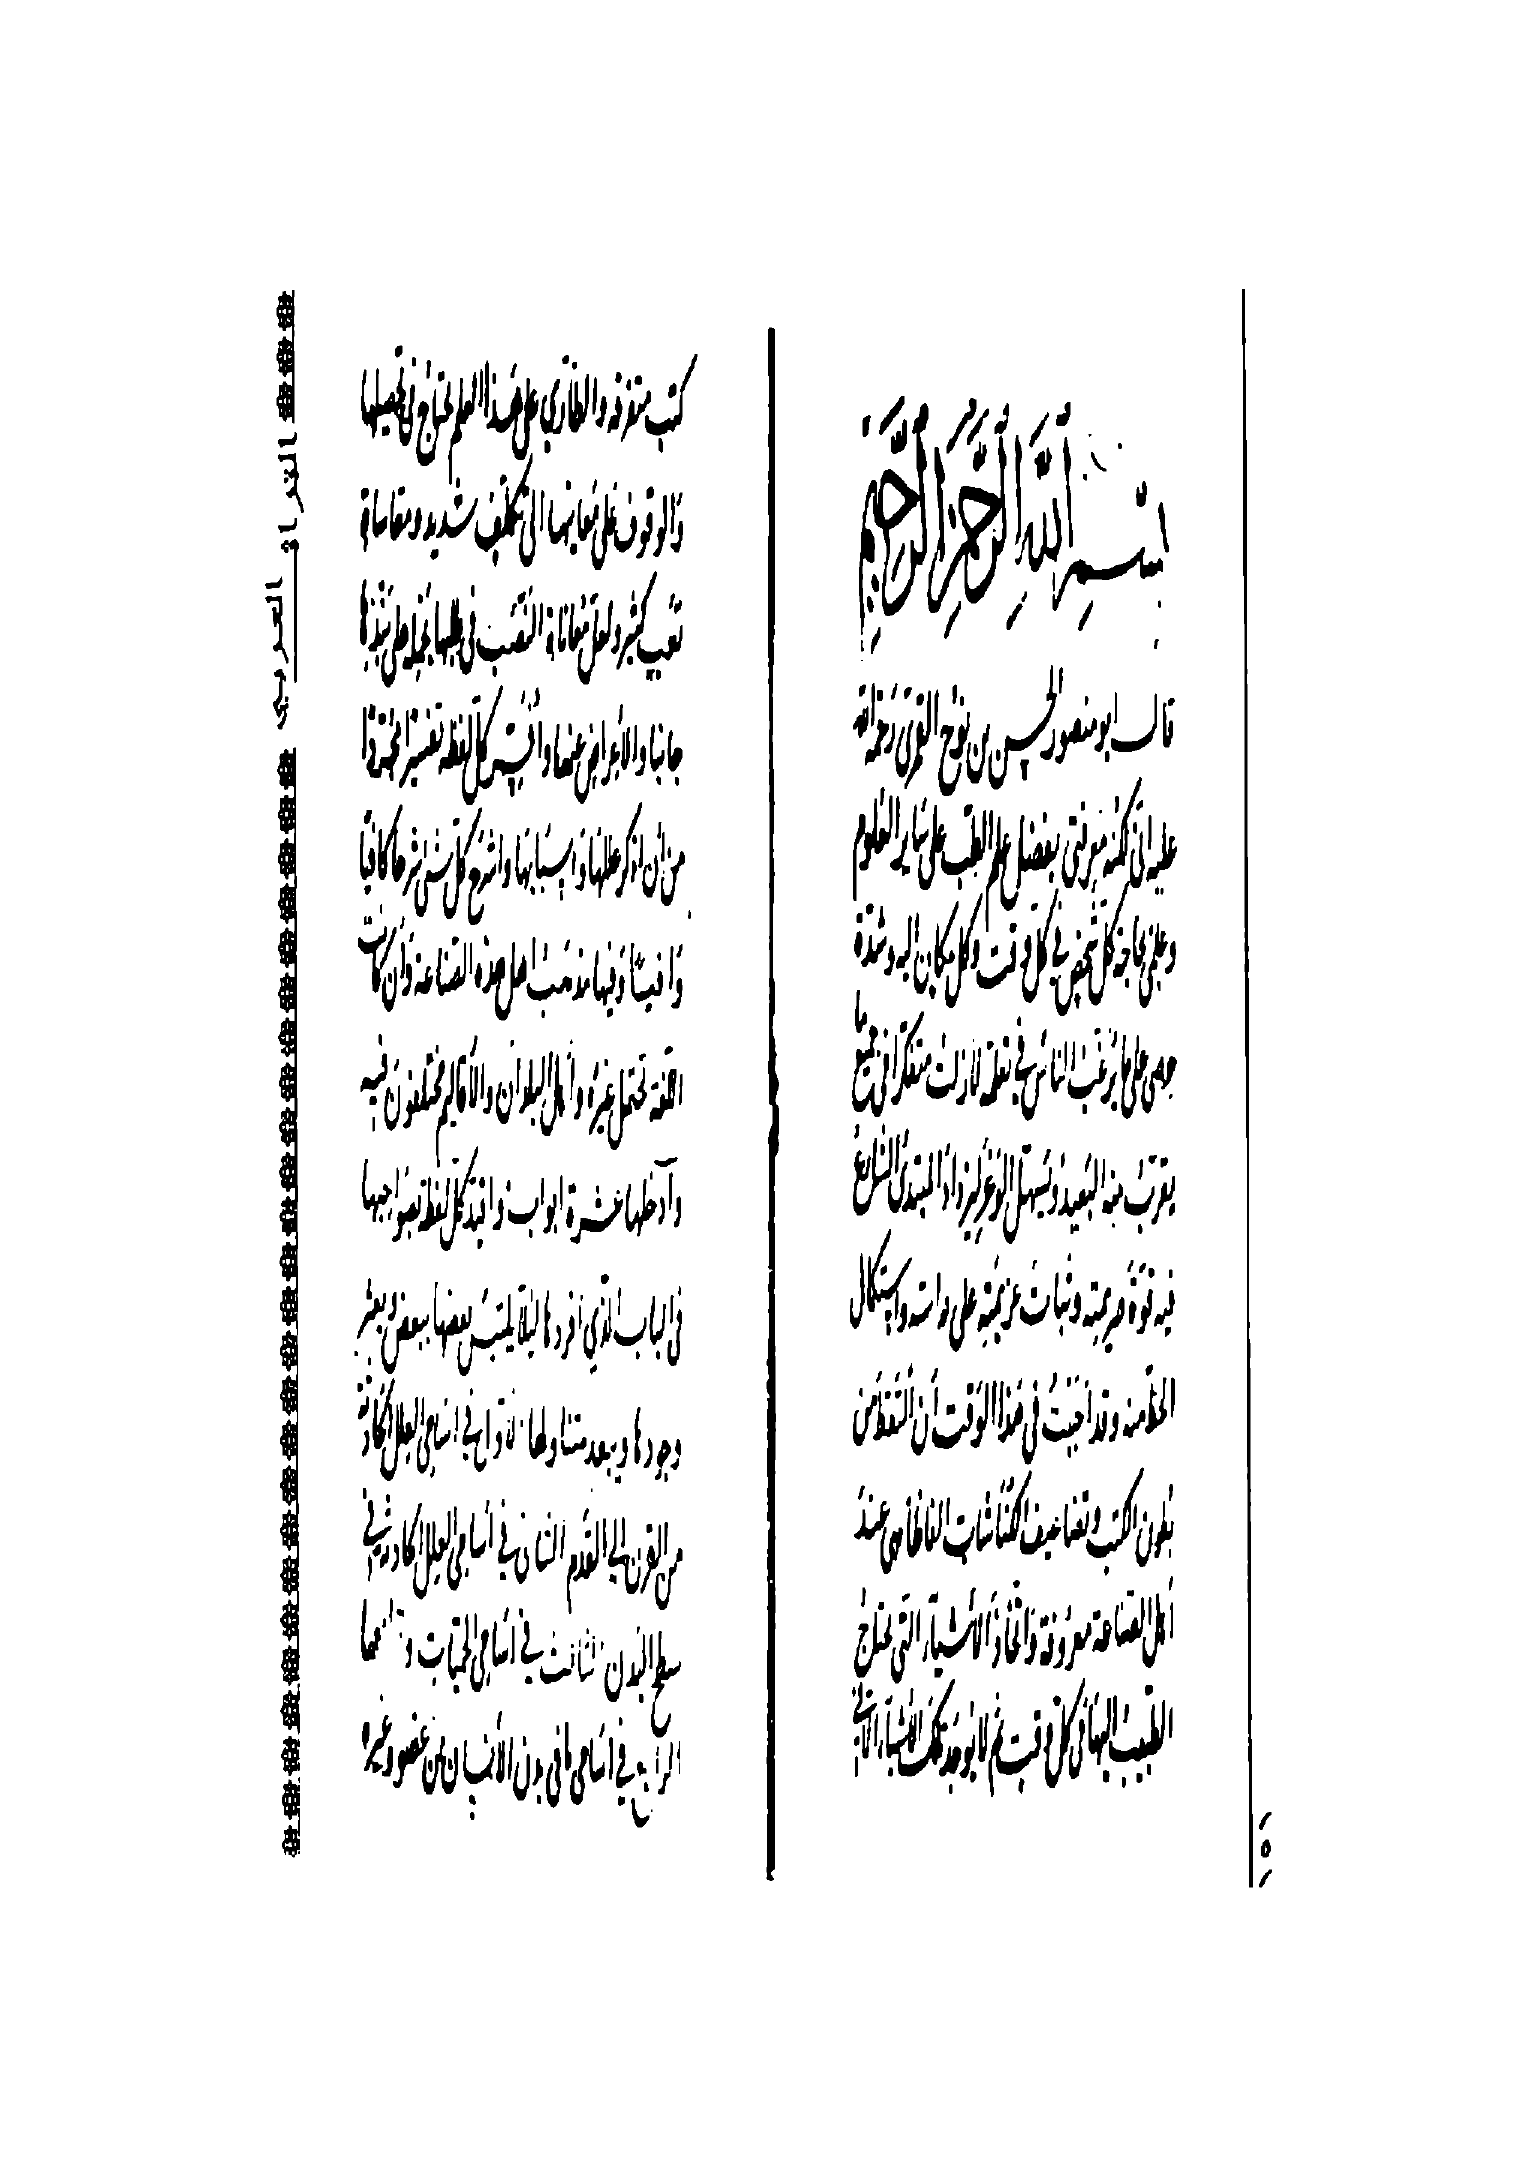 بسم الله الرحمن الرحيم
قال ابو منصور الحسن بن نوح القمري رحمة الله
عليه انى لمكنة معرفتى بفضل علم الطب على ساير العلوم
وعلمى بحاجة كل شخص فى كل وقت وكل مكان اليه وشدة
حرصى على ما يرغب الناس فى تعلمه لا زلت متفكرا فى جميع ما
يقرب منه البعيد ويسهل الوعر ليزداد المبتدئ الشارع
فيه قوة صريمته وثبات عزيمته على دراسته واستكمال
الحظ منه وقد احببت فى هذا الوقت أن التقط من
بطون الكتب وتضاعيف الكناشات الفاظا هى عند
أهل الصناعة معروفة واتخاذ الأشياء التى يحتاج
الطبيب اليها فى كل وقت ثم لا توجد تلك الأشياء الا فى
كتب متفرقة والطارى على هذا العلم يحتاج فى تحصيلها
والوقوف على معانيها الى تكلف شديد ومقاساة
تعب كثير ولعل معاناة التعب فى طلبها يحمله على نبذها
جانبا والاعراض عنها وأفسر كل لفظة تفسيرا مجردا
من أن اذكر عللها واسبابها واشرح كل شئ شرحا كافيا
وافيا وفيها مذهب اهل هذه الصناعة وان كانت
اللغة تحتمل غيره وأهل البلدان والأقاليم مختلفون فيه
وأدخلها عشرة ابواب واقيد كل لفظة بصواحبها
فى الباب الذي أفردها لئلا يلتبس بعضها ببعض ويعسر
وجودها ويبعد متناولها الأول فى اسامى العلل الحادثة
من القرن إلى القدم الثانى فى أسامى العلل الحادثة فى
سطح البدن الثالث فى اسامى الحميات و
الرابع فى اسامى ما فى بدن الأنسان من عضو وغيره
التراث العربي
٥